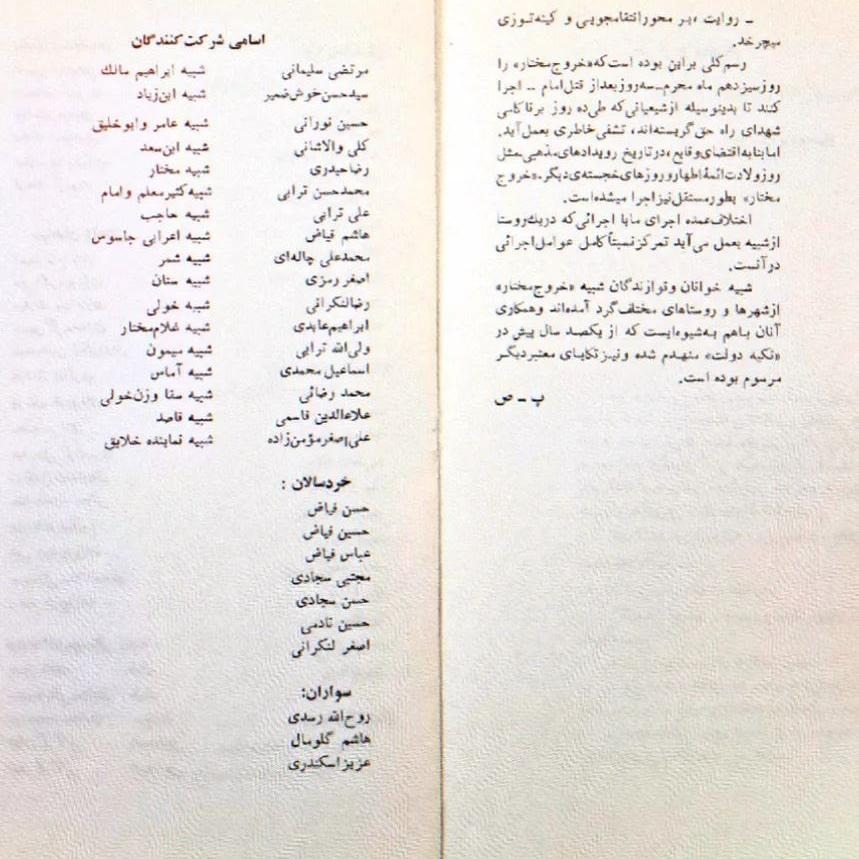 ـ روایت ، بر محور انتقامجویی و کینه‌توزی
میچرخد.
رسم کلی براین بوده است که «خروج مختار» را
روز سیزدهم ماه محرم ـ سه روز بعد از قتل امام ـ اجرا
کنند تا بدینوسیله از شیعیانی که طی ده روز بر ناکامی
شهدای راه حق گریسته‌اند، تشفی خاطری بعمل آید.
اما بنا به اقتضای وقایع، در تاریخ رویدادهای مذهبی مثل
روز ولادت ائمهٔ اطهار و روزهای خجسته‌ی دیگر. «خروج
مختار» بطور مستقل نیز اجرا میشده است.
اختلاف عمده اجرای ما با اجرائی که در یك روستا
از شبیه بعمل می‌آید تمرکز نسبتاً کامل عوامل اجرائی
در آنست.
شبیه خوانان و نوازندگان شبیه «خروج مختار»
از شهرها و روستاهای مختلف گرد آمده‌اند وهمکاری
آنان باهم به شیوه‌ایست که از یکصد سال پیش در
«تکیه دولت» منهدم شده و نیز تکایای معتبر دیگر
مرسوم بوده است.
پ ـ ص
اسامی شرکت کنندگان
مرتضی سلیمانی شبیه ابراهیم مالك
سیدحسن خوش ضمیر شبیه ابن‌زیاد
حسین نورانی شبیه عامر وابوخلیق
کلی والاشانی شبیه ابن‌سعد
رضا حیدری شبیه مختار
محمدحسن ترابی شبیه کثیر معلم وامام
علی ترابی شبیه حاجب
هاشم فیاض شبیه اعرابی جاسوس
محمدعلی چاله‌ای شبیه شمر
اصغر رمزی شبیه ستان
رضا لنکرانی شبیه خولی
ابراهیم عابدی شبیه غلام مختار
ولی‌الله ترابی شبیه میمون
اسماعیل محمدی شبیه آماس
محمد رضائی شبیه سنا وزن خولی
علاءالدین قاسمی شبیه قاصد
علی اصغر مؤمن‌زاده شبیه نماینده خلایق
خردسالان :
حسن فیاض
حسین فیاض
عباس فیاض
مجتبی سجادی
حسن سجادی
حسین نادمی
اصغر لنکرانی
سواران:
روح‌الله رسدی
هاشم گلومال
عزیز اسکندری